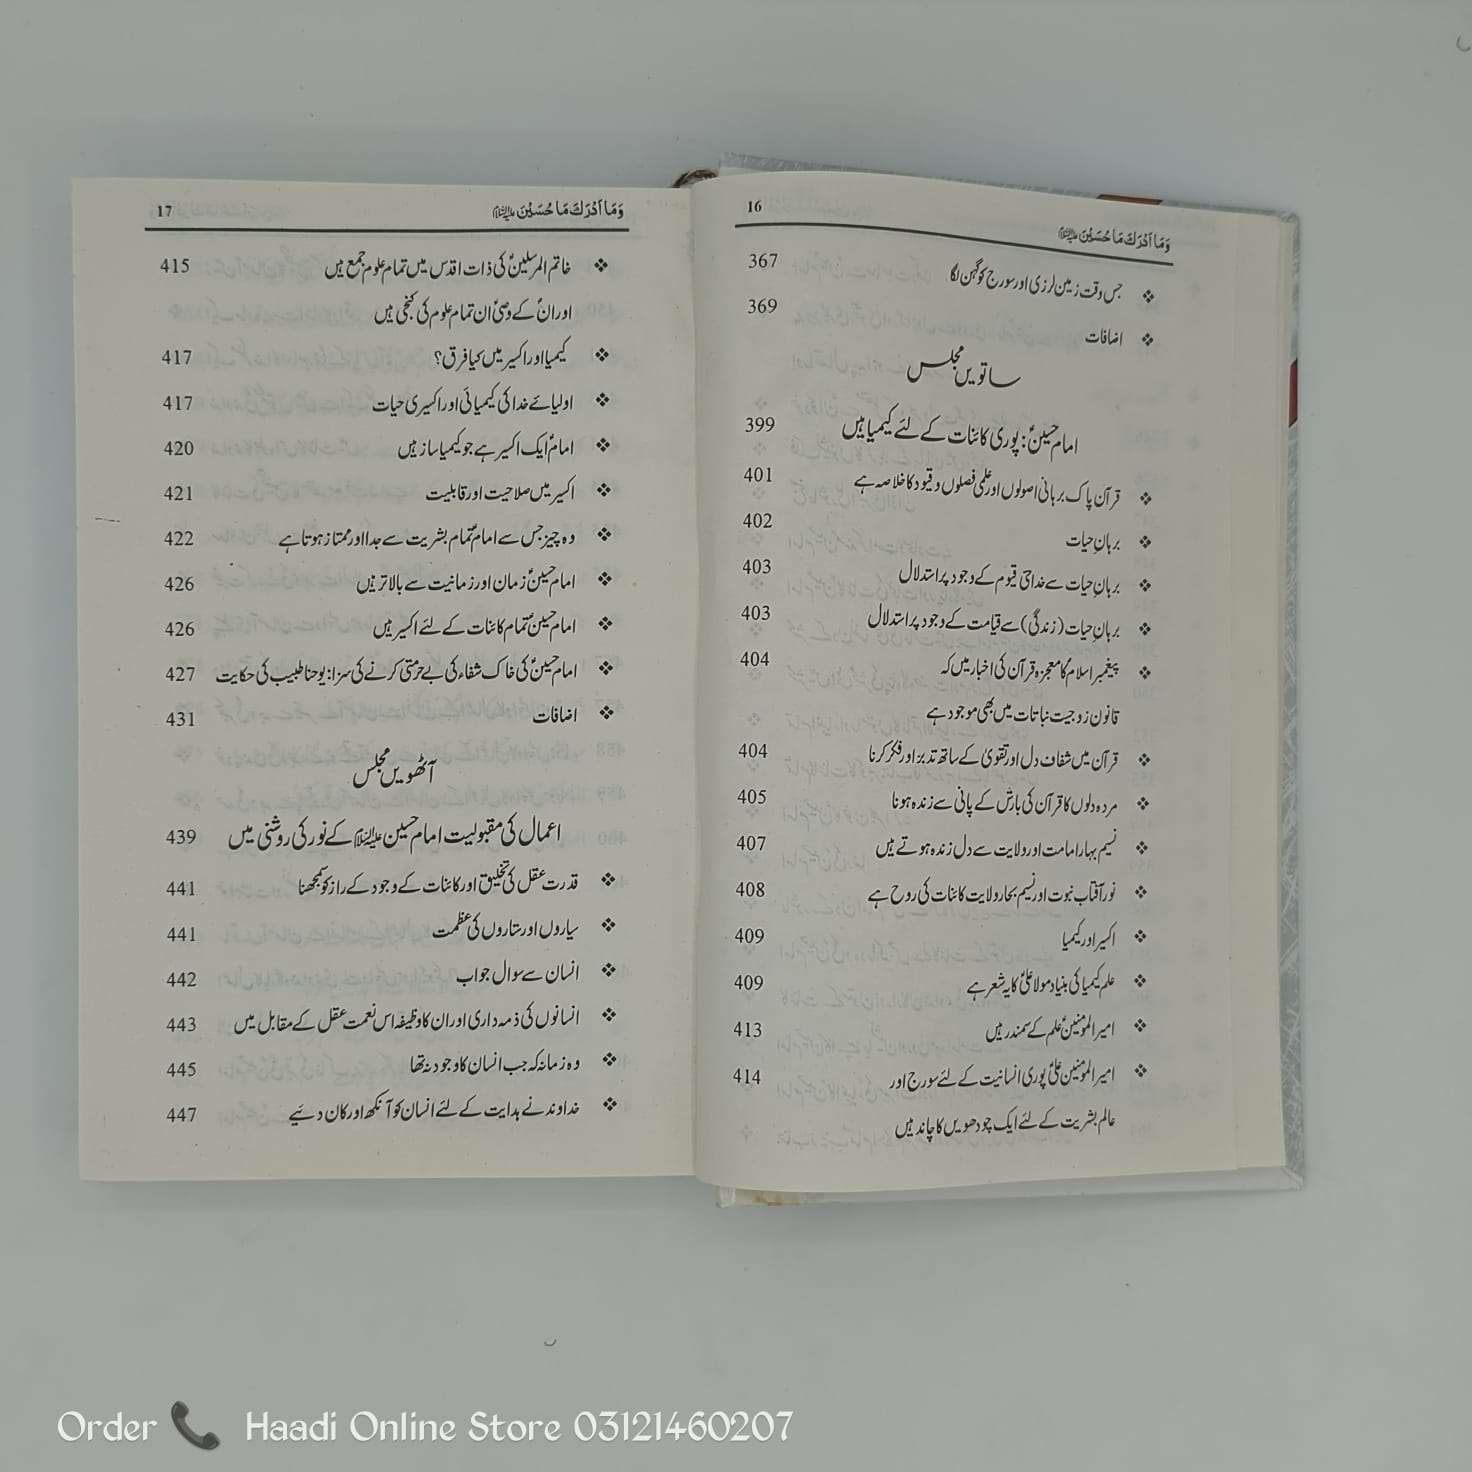 16
وَمَا اَدْرَكَ مَا حُسَيْنَ علیہ السلام
❖ جس وقت زمین لرزی اور سورج کو گہن لگا 367
❖ اضافات 369
ساتویں مجلس
امام حسینؑ: پوری کائنات کے لئے کیمیا ہیں 399
❖ قرآن پاک برہانی اصولوں اور علمی فصلوں و قیود کا خلاصہ ہے 401
❖ برہانِ حیات 402
❖ برہانِ حیات سے خدا حی قیوم کے وجود پر استدلال 403
❖ برہانِ حیات (زندگی) سے قیامت کے وجود پر استدلال 403
❖ پیغمبر اسلامؐ کا معجزہ قرآن کی اخبار میں کہ 404
قانون زوجیت نباتات میں بھی موجود ہے
❖ قرآن میں شفاف دل اور تقویٰ کے ساتھ تدبر اور فکر کرنا 404
❖ مردہ دلوں کا قرآن کی بارش کے پانی سے زندہ ہونا 405
❖ نسیم بہار امامت اور ولایت سے دل زندہ ہوتے ہیں 407
❖ نور آفتاب نبوت اور نسیم بحار ولایت کائنات کی روح ہے 408
❖ اکسیر اور کیمیا 409
❖ علم کیمیا کی بنیاد مولا علیؑ کا یہ شعر ہے 409
❖ امیر المومنینؑ علم کے سمندر ہیں 413
❖ امیر المومنین علیؑ پوری انسانیت کے لئے سورج اور 414
عالم بشریت کے لئے ایک چودھویں کا چاند ہیں
17
وَمَا اَدْرَكَ مَا حُسَيْنَ علیہ السلام
❖ خاتم المرسلینؐ کی ذات اقدس میں تمام علوم جمع ہیں 415
اور انؐ کے وصیؑ ان تمام علوم کی کنجی ہیں
❖ کیمیا اور اکسیر میں کیا فرق؟ 417
❖ اولیائے خدا کی کیمیائی اور اکسیری حیات 417
❖ امامؑ ایک اکسیر ہے جو کیمیا ساز ہیں 420
❖ اکسیر میں صلاحیت اور قابلیت 421
❖ وہ چیز جس سے امامؑ تمام بشریت سے جدا اور ممتاز ہوتا ہے 422
❖ امام حسینؑ زمان اور زمانیت سے بالاتر ہیں 426
❖ امام حسینؑ تمام کائنات کے لئے اکسیر ہیں 426
❖ امام حسینؑ کی خاک شفاء کی بے حرمتی کرنے کی سزا: یوحنا طبیب کی حکایت 427
❖ اضافات 431
آٹھویں مجلس
اعمال کی مقبولیت امام حسین علیہ السلام کے نور کی روشنی میں 439
❖ قدرت عقل کی تخلیق اور کائنات کے وجود کے راز کو سمجھنا 441
❖ سیاروں اور ستاروں کی عظمت 441
❖ انسان سے سوال جواب 442
❖ انسانوں کی ذمہ داری اور ان کا وظیفہ اس نعمت عقل کے مقابل میں 443
❖ وہ زمانہ کہ جب انسان کا وجود نہ تھا 445
❖ خداوند نے ہدایت کے لئے انسان کو آنکھ اور کان دئیے 447
Order Haadi Online Store 03121460207